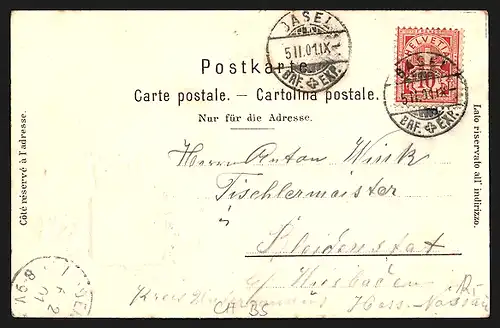 BASEL
5 II. 01. IX
BRF. EXP.
HELVETIA
10
BASEL
5 II. 01. IX
BRF. EXP.
Postkarte.
Carte postale. — Cartolina postale.
Nur für die Adresse.
Côté réservé à l'adresse.
Lato riservato all' indirizzo.
Herrn Anton Wink
Tischlermeister
in
Bleidenstat
b/ Wiesbaden
Kreis Hess. Nassau
CH BS